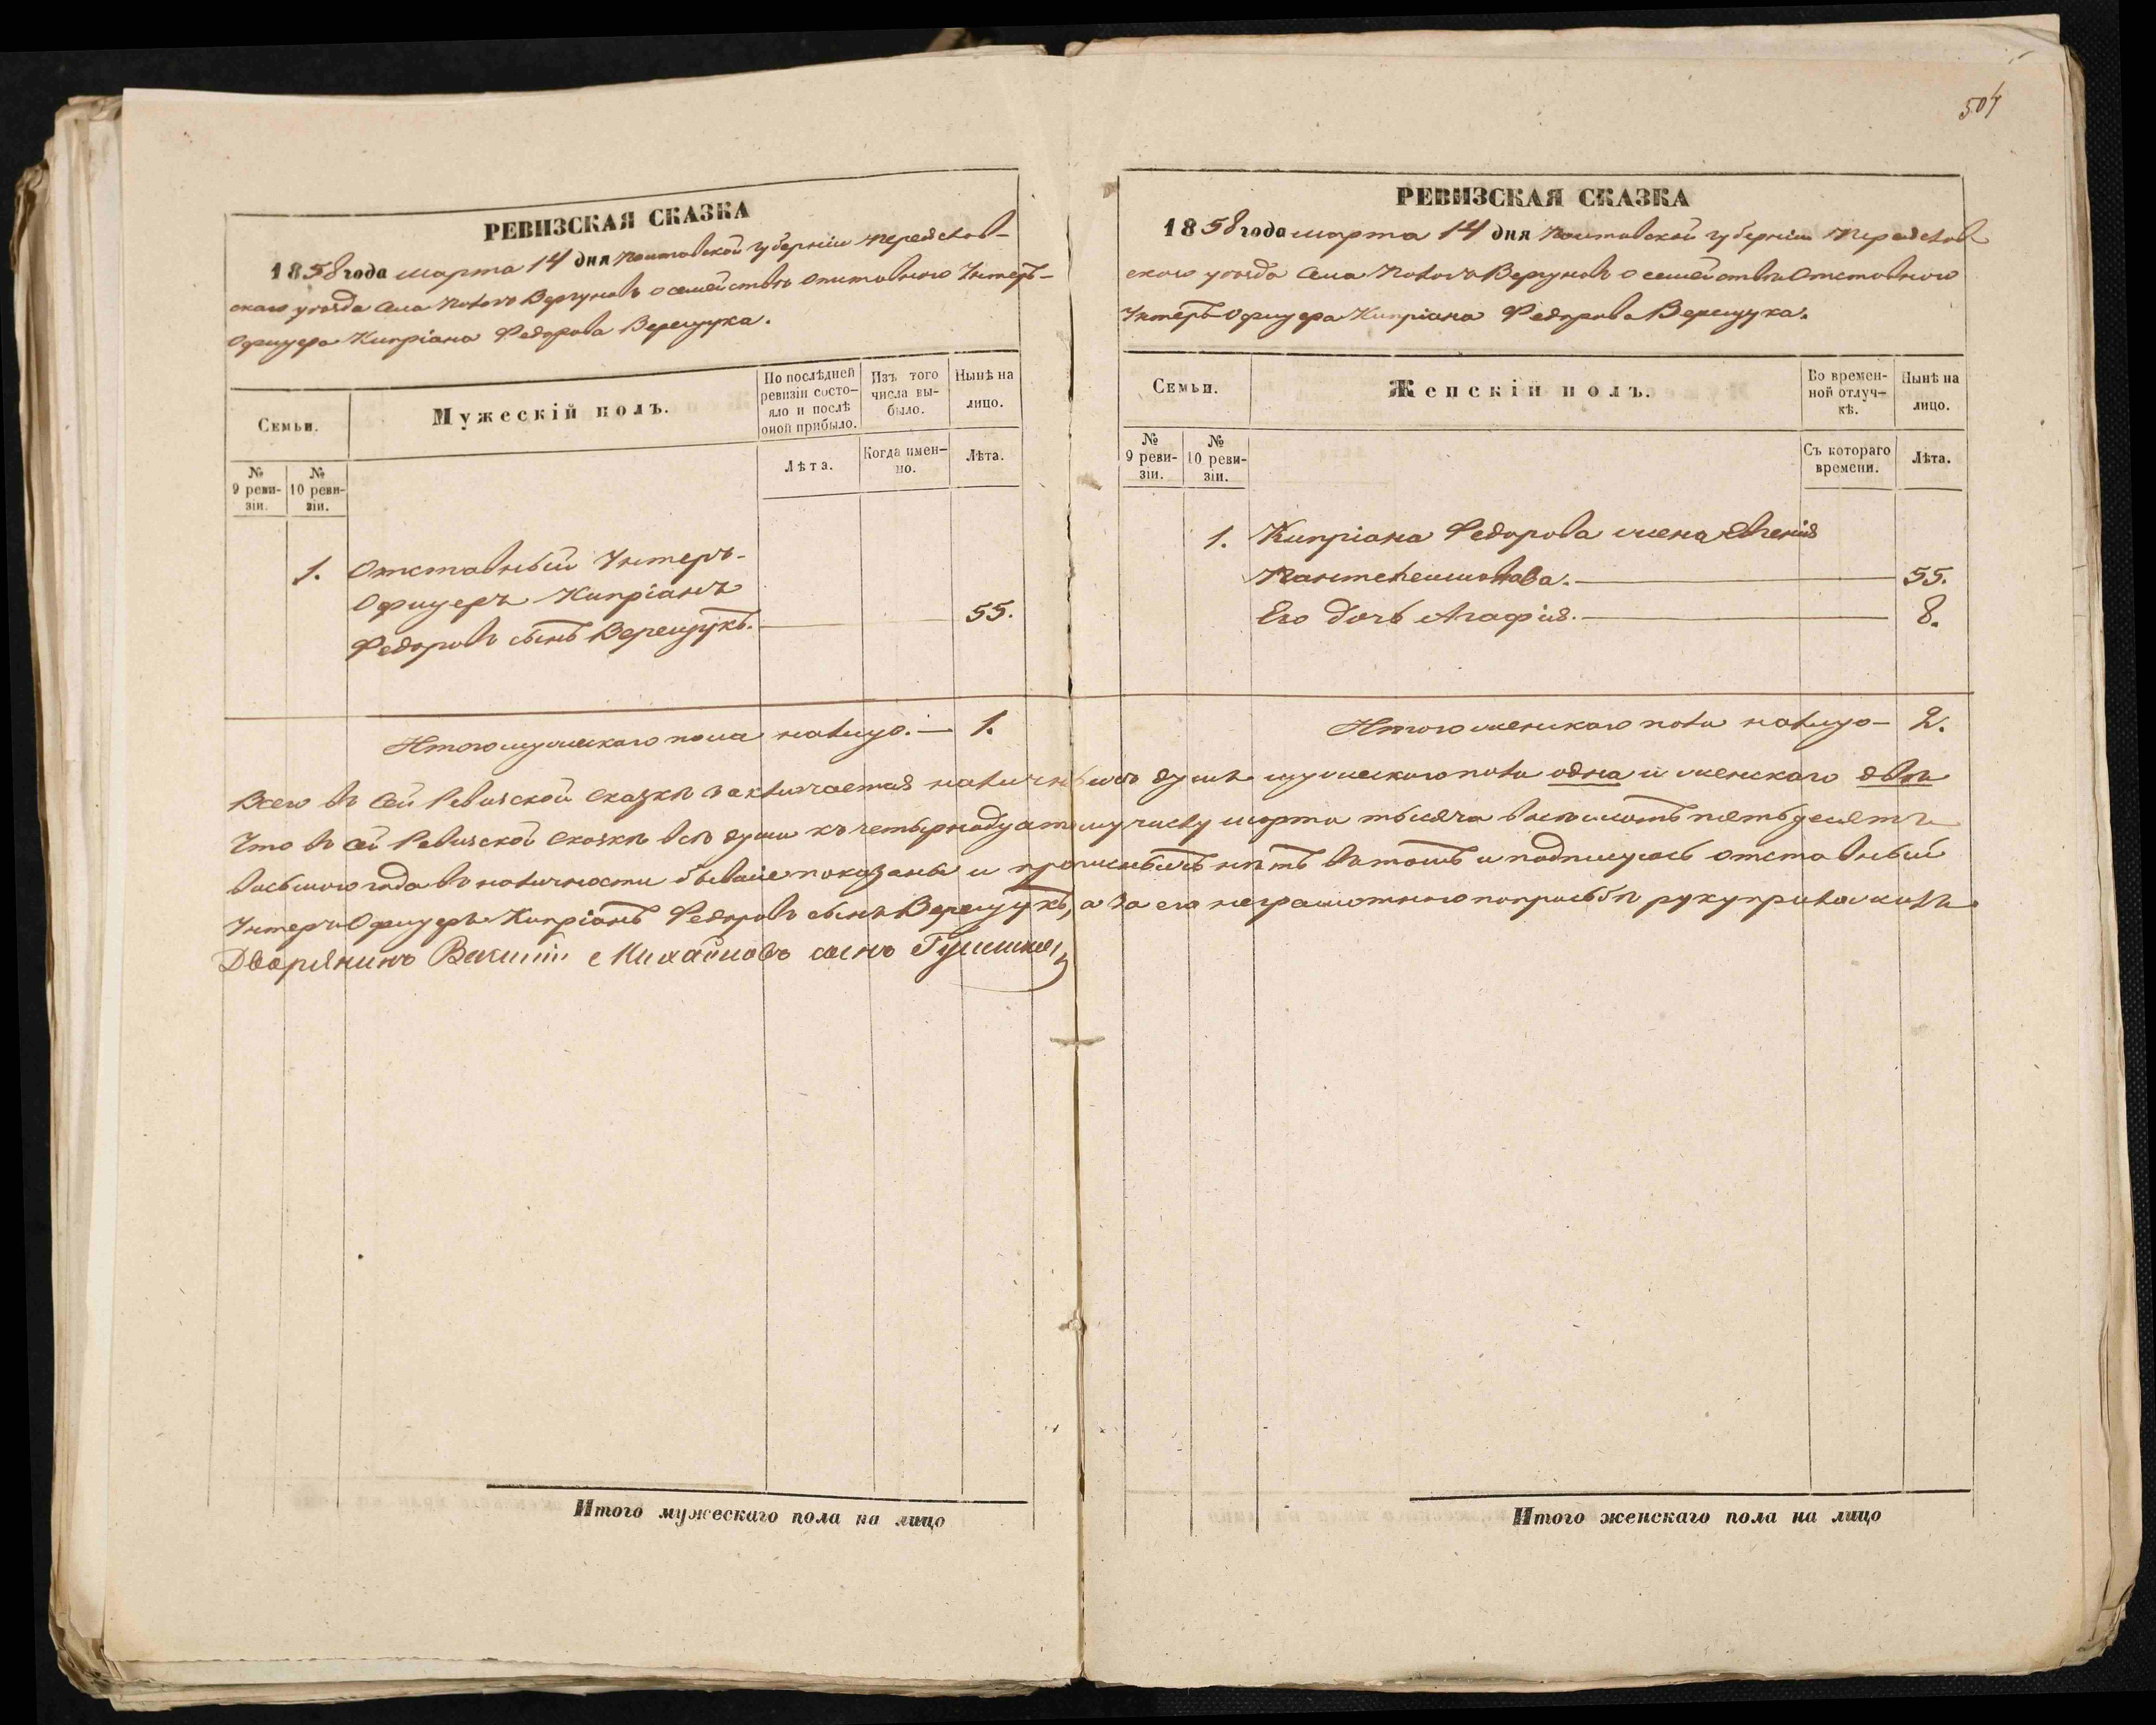 504
РЕВИЗСКАЯ СКАЗКА
1858 года марта 14 дня Полтавской губерніи Переяслов-
скаго уезда села Пологъ Вергуновъ о семействѣ отставного Унтеръ-
Офицера Кипріана Федорова Верещука.
Семьи.
Мужескій полъ.
По послѣдней ревизіи состо-яло и послѣ оной прибыло.
Изъ того числа вы-было.
Нынѣ на лицо.
№ 9 реви-зіи.
№ 10 реви-зіи.
Лѣта.
Когда имен-но.
Лѣта.
1. Отставный Унтеръ-
Офицеръ Кипріанъ
Федоровъ сынъ Верещукъ. 55.
Итого мужескаго пола налицо. — 1.
РЕВИЗСКАЯ СКАЗКА
1858 года марта 14 дня Полтавской губерніи Переяслов
скаго уезда села Пологъ Вергуновъ о семействѣ Отставного
Унтеръ Офицера Кипріана Федорова Верещука.
Семьи.
Женскій полъ.
Во времен-ной отлуч-кѣ.
Нынѣ на лицо.
№ 9 реви-зіи.
№ 10 реви-зіи.
Съ котораго времени.
Лѣта.
1. Кипріана Федорова жена Евгенія
Пантелеимонова. 55.
Его дочь Агафія. 8.
Итого женскаго пола налицо — 2.
Всего въ сей Ревизской сказкѣ заключается наличныхъ душъ мужескаго пола одна и женскаго двѣ
Что въ сей Ревизской сказкѣ всѣ души къ четырнадцатому числу марта тысяча восемьсотъ пятьдесятъ
восьмого года въ наличности бывшіе показаны и прописныхъ нѣтъ въ томъ и подпишусь отставный
Унтеръ Офицеръ Кипріанъ Федоровъ сынъ Верещукъ, а за его неграмотного попросьбѣ руку приложилъ
Дворянинъ Василий Михайловъ сынъ
Итого мужескаго пола на лицо
Итого женскаго пола на лицо